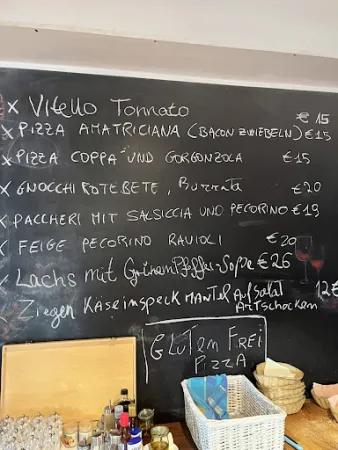 x Vitello Tonnato € 15
x PIZZA AMATRICIANA (BACON ZWIEBELN) €15
x PIZZA COPPA UND GORGONZOLA €15
x GNOCCHI ROTE BETE, Burrata €20
x PACCHERI MIT SALSICCIA UND PECORINO €19
x FEIGE PECORINO RAVIOLI €20
Lachs mit Grünem Pfeffer-Soße €26
Ziegen KASE inspeck MANTEL Auf Salat 12€
Artischocken
GLUTEN FREI
PIZZA